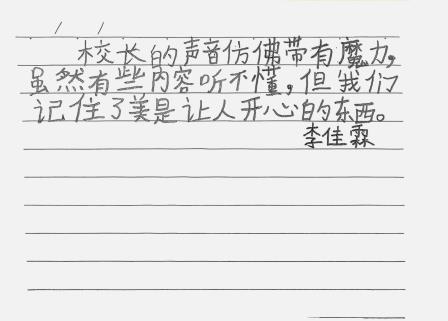 校长的声音仿佛带有魔力,
虽然有些内容听不懂,但我们
记住了美是让人开心的东西。
李佳霖